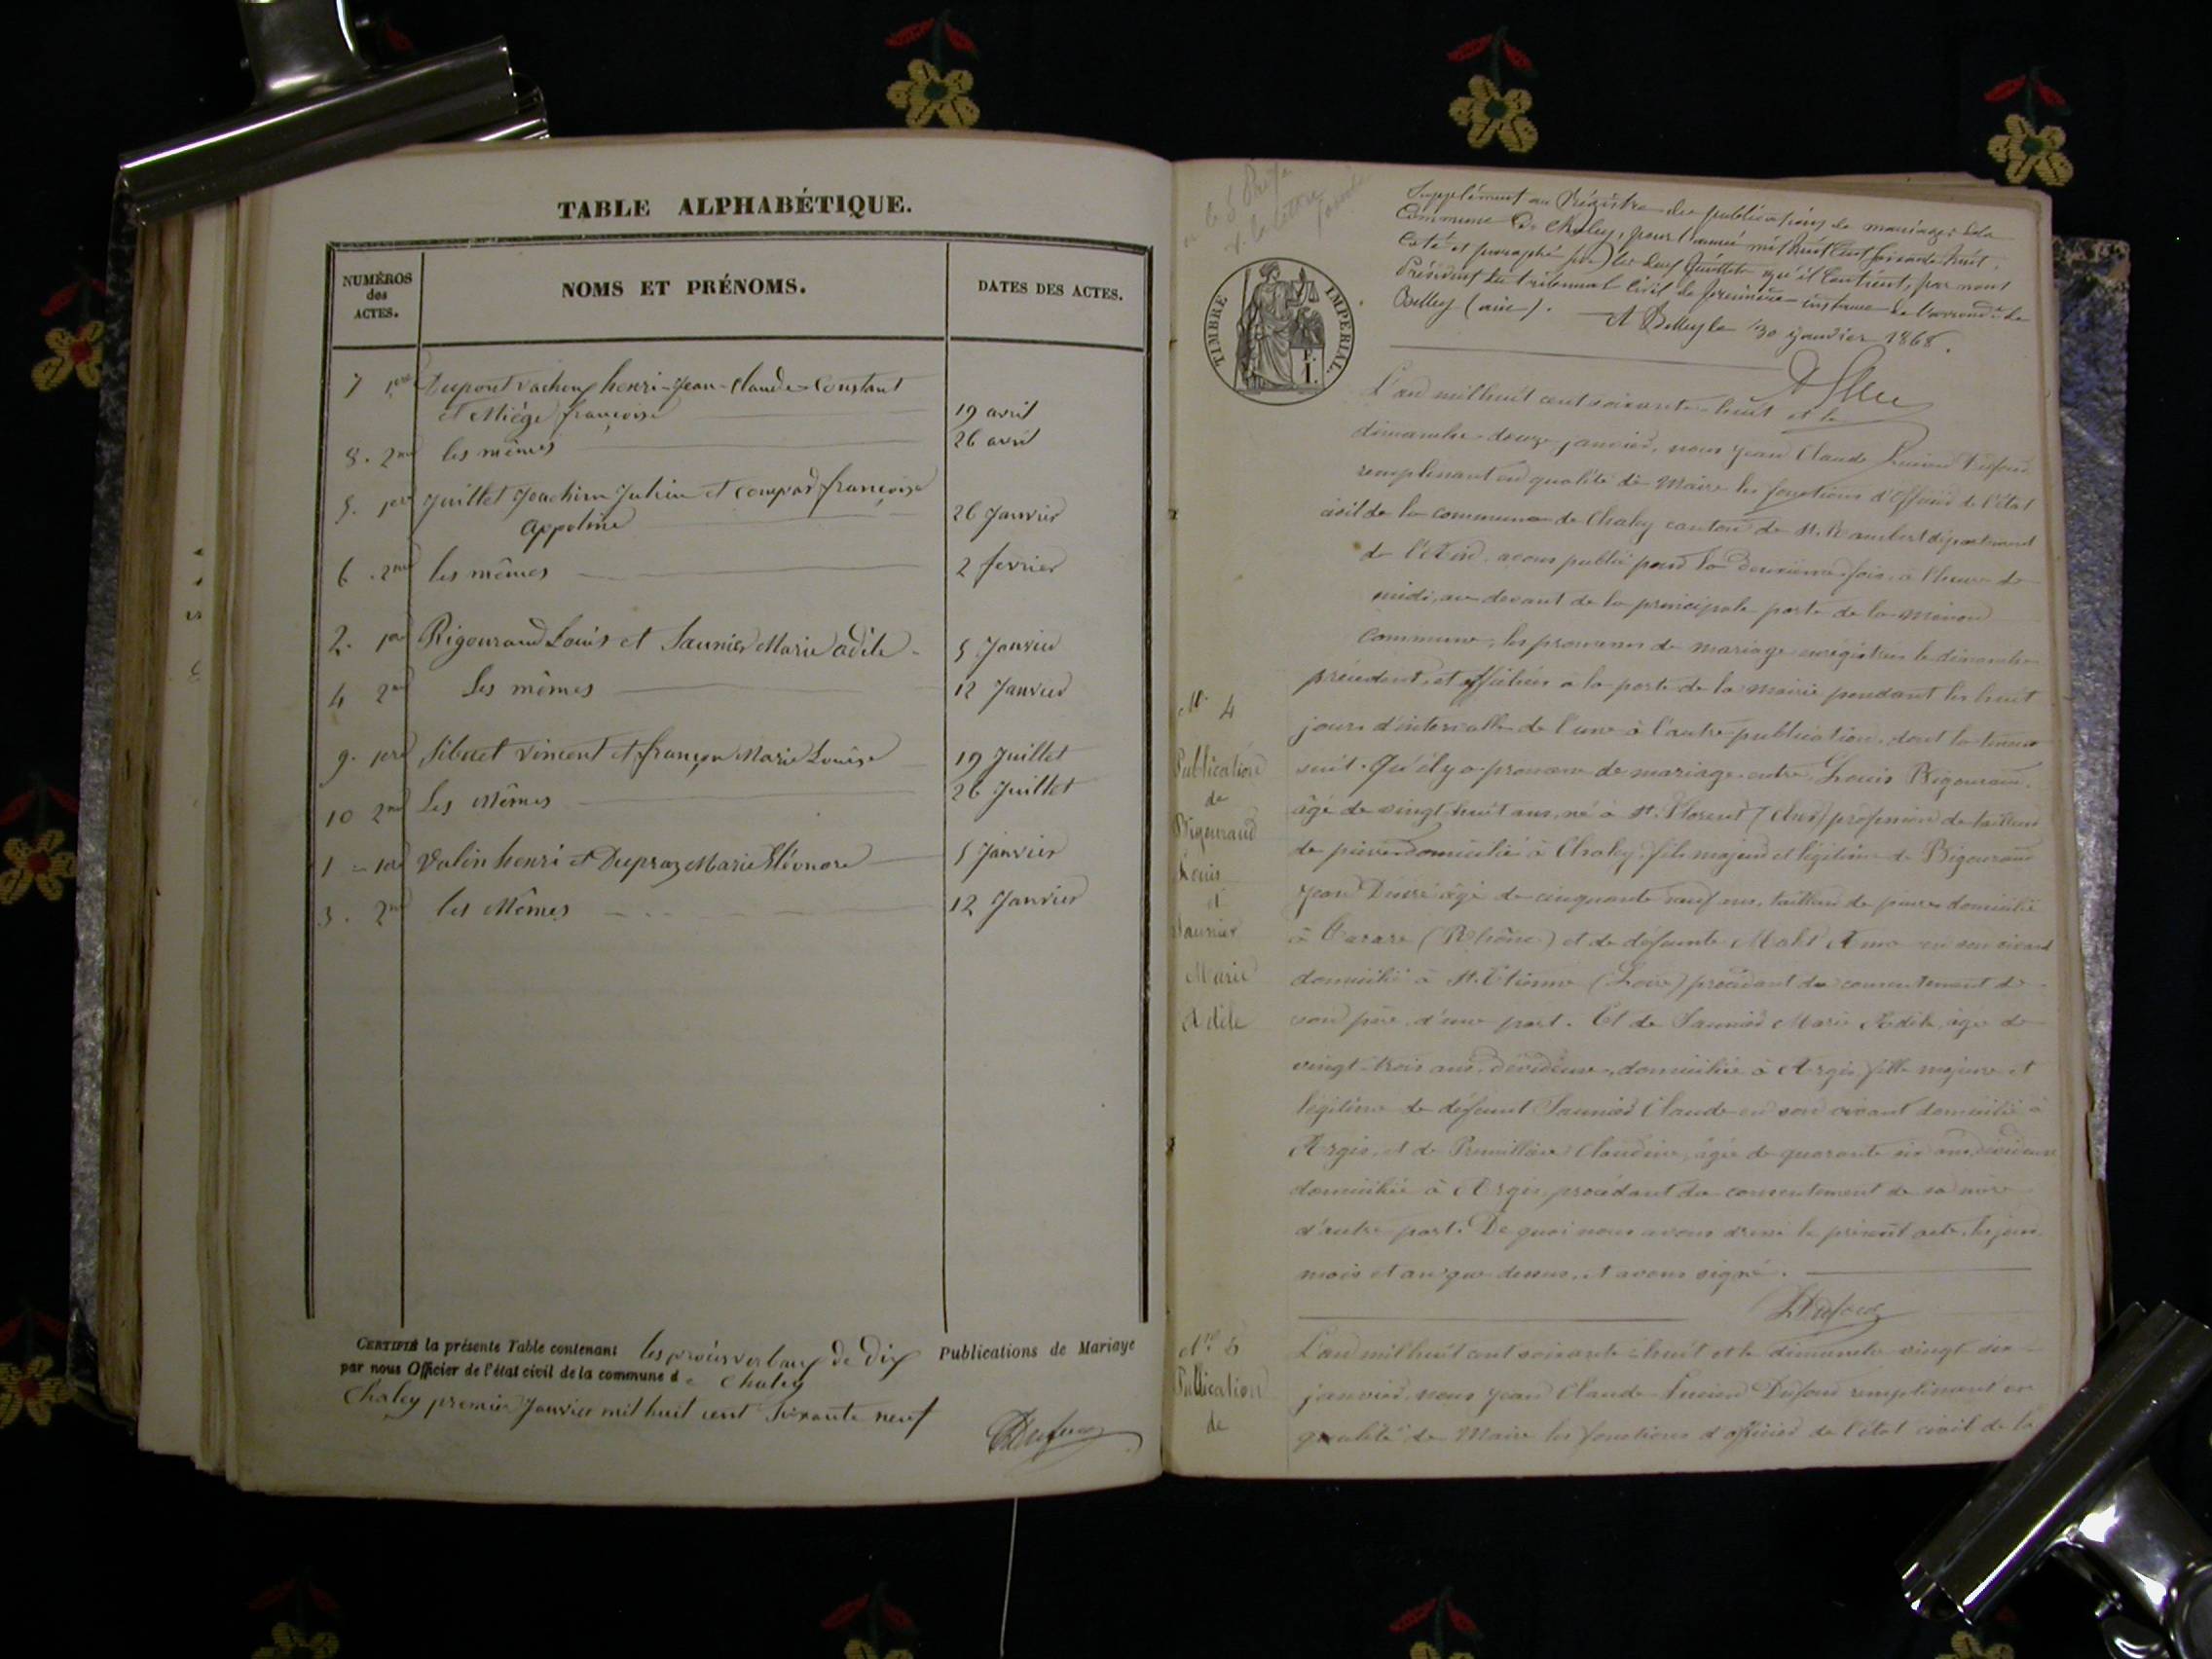 TABLE ALPHABÉTIQUE.
NUMÉROS
des
ACTES.
NOMS ET PRÉNOMS.
DATES DES ACTES.
7 1ere Dupont vachon henri-Jean-Claude-Constant
et Miège françoise 19 avril
8. 2me les mêmes 26 avril
5. 1ere Juillet Joachim Julien et françoise
appoline 26 Janvier
6. 2me les mêmes 2 fevrier
2. 1ere Rigouraud Louis et Saunier Marie adèle 5 Janvier
4 2me Les mêmes 12 Janvier
9. 1ere Sibuet Vincent et françon Marie Louise 19 Juillet
10 2me Les Mêmes 26 Juillet
1 1ere Valin henri et Dupraz Marie Eléonore 5 Janvier
3. 2me les Mêmes 12 Janvier
CERTIFIÉ la présente Table contenant les procès verbaux de dix Publications de Mariage
par nous Officier de l'état civil de la commune de Chaley
Chaley premier Janvier mil huit cent soixante neuf
Dufour
TIMBRE IMPERIAL.
Supplément au Régistre des publications de mariages de la
Commune de Chaley, pour l'année mil huit cent soixante huit,
Coté et paraphé par les deux feuillets qu'il contient, par nous
Président du tribunal Civil de première instance de l'arrond.t de
Belley (ain). A Belley le 30 janvier 1868.
L'an mil huit cent soixante-huit et le
dimanche douze janvier, nous Jean Claude Lucien Dufour
remplissant en qualité de Maire les fonctions d'officier de l'état
civil de la commune de Chaley canton de St. Rambert département
de l'Ain, avons publié pour la deuxième fois, à l'heure de
midi, au devant de la principale porte de la maison
Commune, les promesses de mariage enregistrées le dimanche
précédent, et affichées à la porte de la Mairie pendant les huit
jours d'intervalle de l'une à l'autre publication, dont la teneur
suit. Qu'il y a promesse de mariage entre Louis Rigouraud,
âgé de vingt huit ans, né à St. Florent (Cher) profession de tailleur
de pierres domicilié à Chaley, fils majeur et légitime de Rigouraud
Jean Désiré âgé de cinquante neuf ans, tailleur de pierres domicilié
à Tarare (Rhône) et de défunte en son vivant
domiciliée à St. Etienne (Loire) procédant du consentement de
son père, d'une part. Et de Saunier Marie Adèle, âgée de
vingt-trois ans, dévideuse, domiciliée à Argis, fille majeure et
légitime de défunt Saunier Claude en son vivant domicilié à
Argis, et de Claudine, âgée de quarante six ans, dévideuse
domiciliée à Argis, procédant du consentement de sa mère
d'autre part. De quoi nous avons dressé le présent acte, les jour
mois et an que dessus, et avons signé.
Dufour
N° 4
Publication
de
Rigouraud
Louis
et
Saunier
Marie
Adèle
N° 5
Publication
de
L'an mil huit cent soixante-huit et le dimanche vingt six
janvier, nous Jean Claude Lucien Dufour remplissant en
qualité de Maire les fonctions d'officier de l'état civil de la